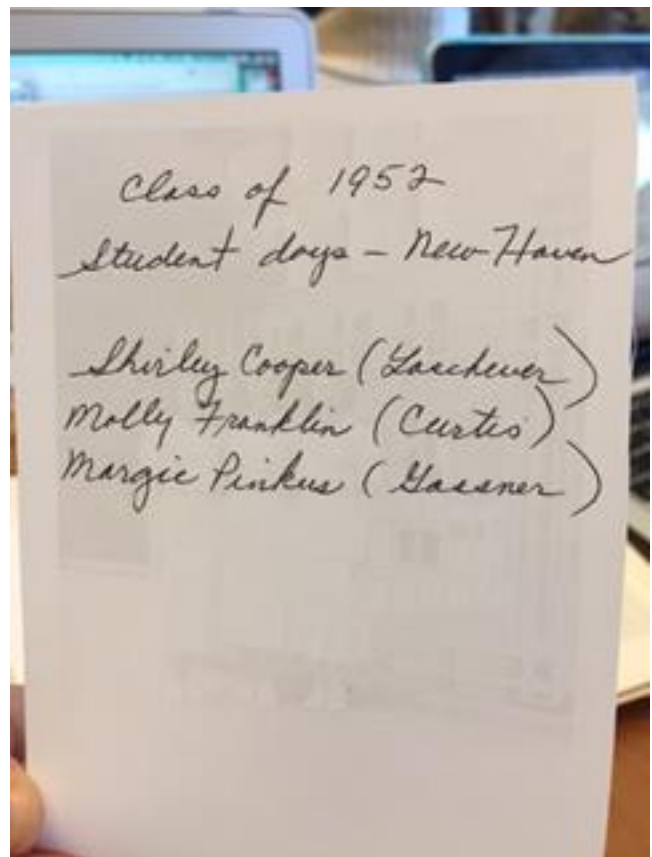 Class of 1952
Student days – New Haven
Shirley Cooper (Laschever)
Molly Franklin (Curtis)
Margie Pinkus (Gassner)